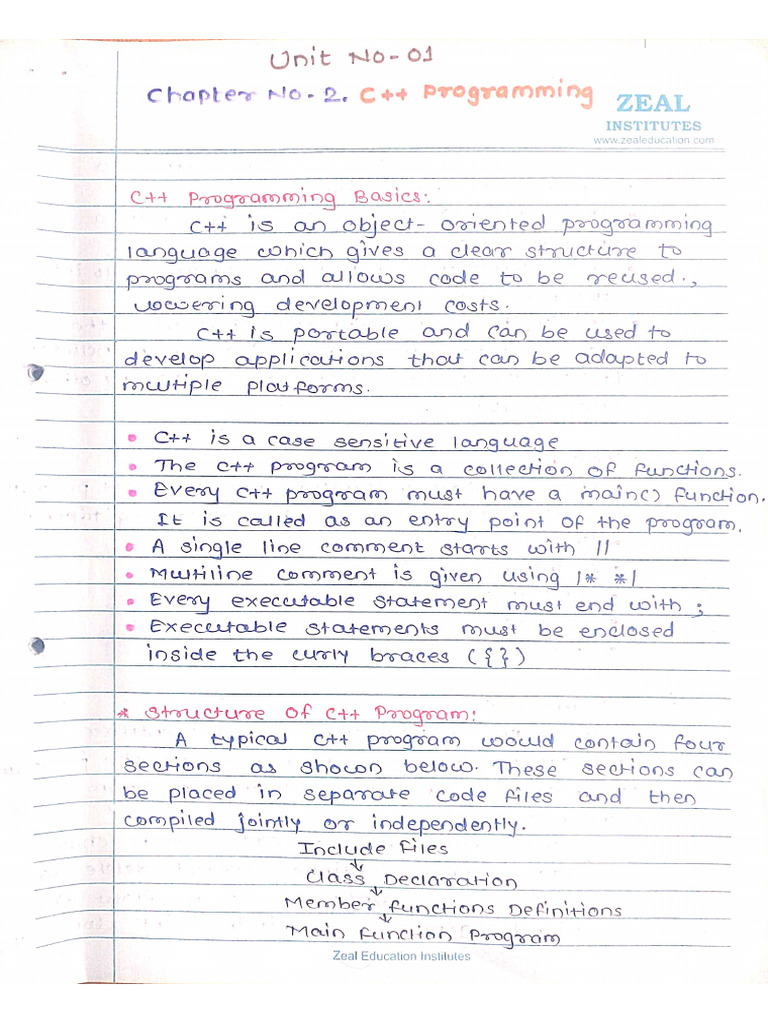 Unit No-01
Chapter No-2. C++ Programming
ZEAL
INSTITUTES
www.zealeducation.com
C++ Programming Basics:
C++ is an object- oriented programming
language which gives a clear structure to
programs and allows code to be reused.,
lowering development costs.
C++ is portable and can be used to
develop applications that can be adapted to
multiple platforms.
• C++ is a case sensitive language
• The C++ program is a collection of functions.
• Every C++ program must have a main() function.
It is called as an entry point of the program.
• A single line comment starts with //
• Multiline comment is given using /* */
• Every executable statement must end with ;
• Executable statements must be enclosed
inside the curly braces ({})
* Structure of C++ Program:
A typical C++ program would contain four
sections as shown below. These sections can
be placed in separate code files and then
compiled jointly or independently.
Include Files
↓
Class Declaration
↓
Member functions Definitions
↓
Main function Program
Zeal Education Institutes